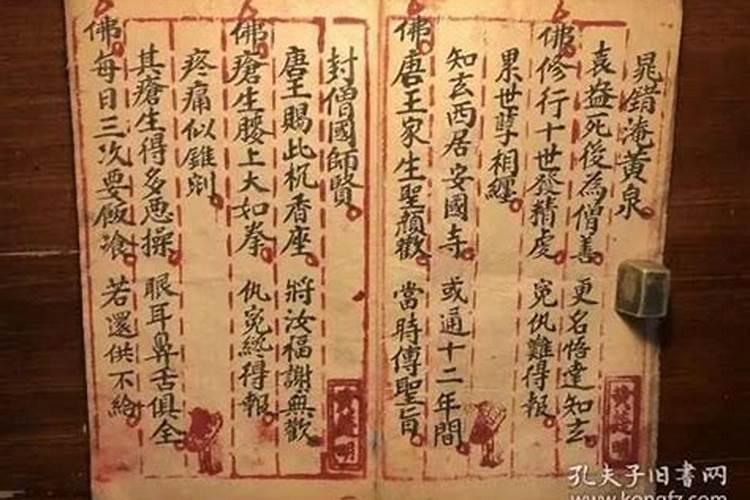 晁錯淹黃泉
袁盎死後為僧善 更名悟達知玄
佛修行十世發精虔 冤仇難得報
累世孽相纏
知玄西居安國寺 或通十二年間
佛唐王家生聖顏歡 當時傳聖旨
封僧國師賢
唐王賜此杌香座 將汝福謝無歡
佛瘡生腰上大如拳 仇冤總得報
疼痛似錐剜
其瘡生得多惡操 眼耳鼻舌俱全
佛每日三次要飯飡 若還供不給
孔夫子旧书网